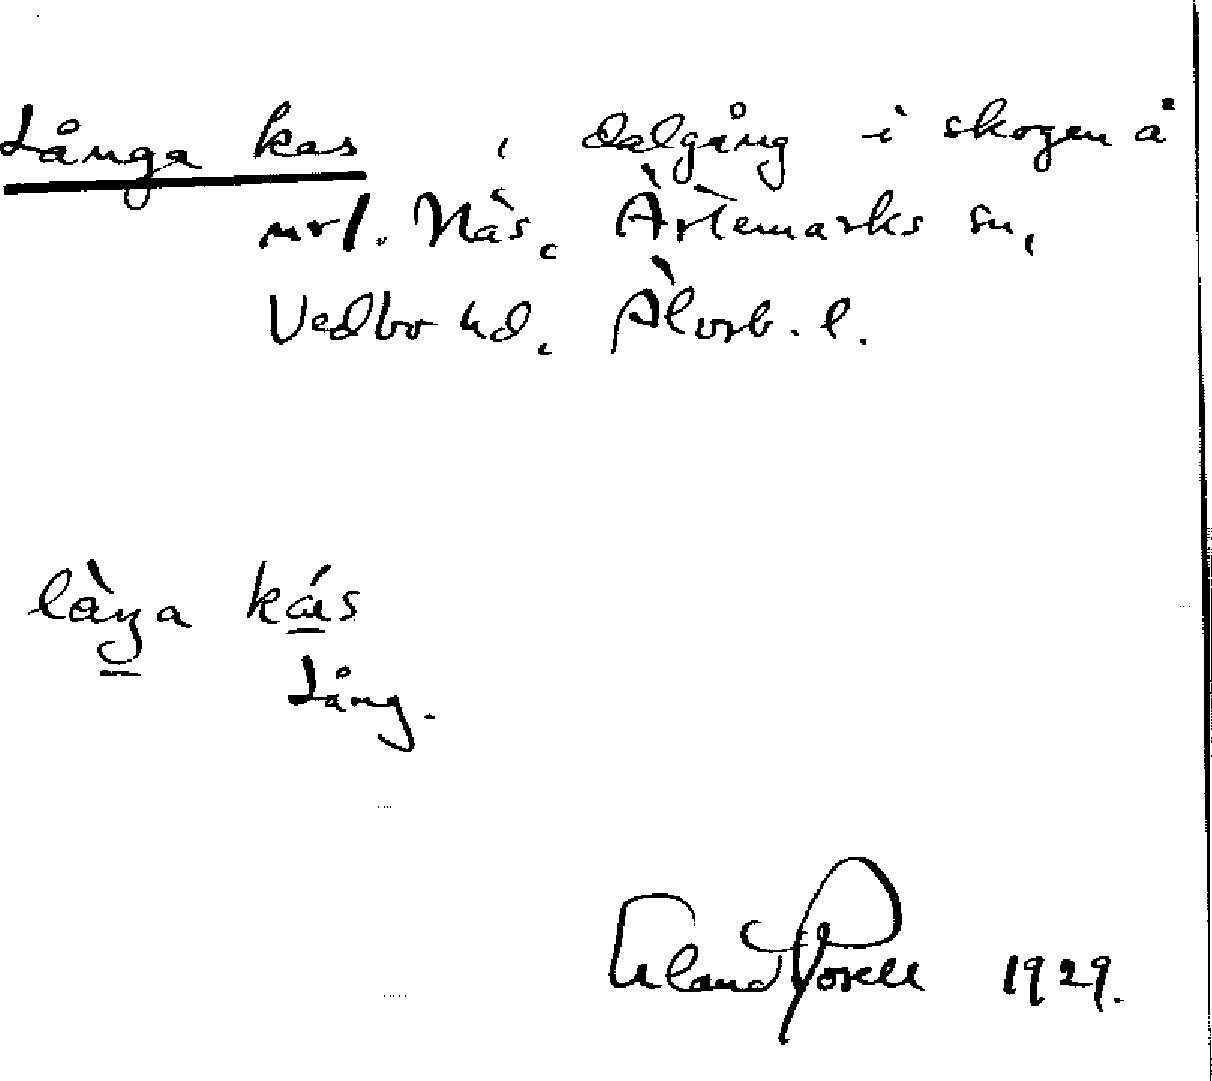 Långa kas , dalgång i skogen å
nrl. Näs, Ärtemarks sn,
Vedbo hd, Älvsb. l.
låŋa kás
Lång.
Erland Rosell 1929.